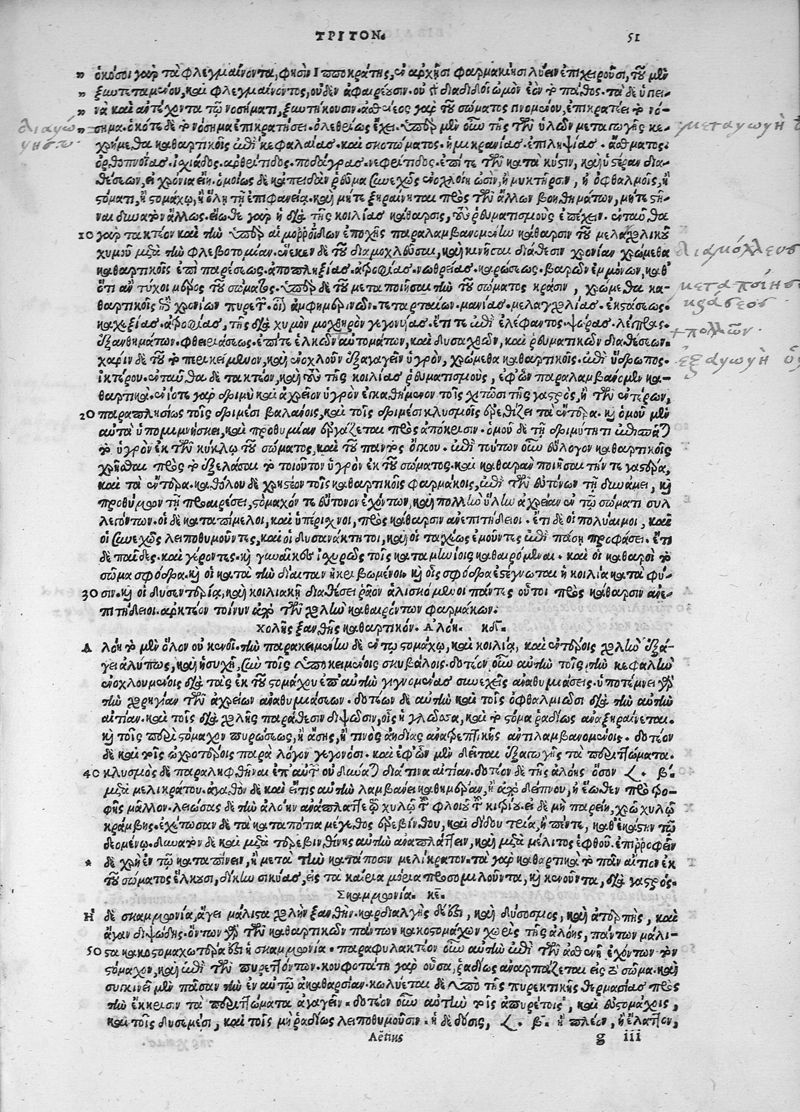 ΤΡΙΤΟΝ. 51
ὁκόσοι γὰρ τὰ φλεγμαίνοντα, φησὶν Ἱπποκράτης, ἐν ἀρχῆσι φαρμακίησι λύειν ἐπιχειροῦσι, τοῦ μὲν
ξυντεταμένου, καὶ φλεγμαίνοντος, οὐδὲν ἀφαιρέουσιν. οὐ γὰρ ἐνδιδοῖ ὠμὸν ἐὸν τὸ πάθος. τὰ δὲ ὑγιει-
νὰ καὶ ἀντέχοντα τῷ νοσήματι, ξυντήκουσιν. ἀσθενέος γὰρ τοῦ σώματος γινομένου, ἐπικρατέει τὸ νό-
σημα. ὁκότε δὲ τὸ νόσημα ἐπικρατήσει, ὀλεθρίως ἔχει. ὑπὲρ μὲν οὖν τῆς τῶν ὑλῶν μεταγωγῆς κε-
χρήμεθα καθαρτικοῖς ἐπὶ κεφαλαίας. καὶ σκοτώματος. ἡμικρανίας. ἐπιληψίας. ἄσθματος.
ὀρθοπνοίας. ἰσχιάδος. ἀρθρίτιδος. ποδάγρας. νεφρίτιδος. ἐπί τε τῶν κατὰ κύστιν, καὶ ὑστέραν δια-
θέσεων, εἰ χρόνιαι εἶεν. ὁμοίως δὲ καὶ ἐπειδὰν ῥεῦμα συνεχῶς ἐνοχλοίη ὠσὶν, ἢ μυκτῆρσιν, ἢ ὀφθαλμοῖς, ἢ
στόματι, ἢ στομάχῳ, ἢ ὅλῃ τῇ ἐπιφανείᾳ. καὶ μήτε ξηραίνηται πρὸς τῶν ἄλλων βοηθημάτων, μήτε στῆ-
ναι δυνατὸν ἄλλως. εἴωθε γὰρ ἡ διὰ τῆς κοιλίας κάθαρσις, τοὺς ῥευματισμοὺς ἐπέχειν. ἐνταῦθα
10 γὰρ τακτέον καὶ τὴν ὑπὲρ αἱμορροΐδων ἐποχῆς παραλαμβανομένην κάθαρσιν τοῦ μελαγχολικοῦ
χυμοῦ μετὰ τὴν φλεβοτομίαν. ἕνεκεν δὲ τοῦ διαμοχλεῦσαι, καὶ κινῆσαι διάθεσιν χρονίαν χρώμεθα
καθαρτικοῖς ἐπὶ παρέσεως. ἀποπληξίας. ἀφωνίας. νωθρείας. καρώσεως. βαρῶν ἐμμόνων, καθ'
ὅτι ἂν τύχοι μέρος τοῦ σώματος. ὑπὲρ δὲ τοῦ μεταποιῆσαι τὴν τοῦ σώματος κρᾶσιν, χρώμεθα κα-
θαρτικοῖς ἐπὶ χρονίων πυρετῶν. οἷον ἀμφημερινῶν. τεταρταίων. μανίας. μελαγχολίας. ἐκστάσεως.
καχεξίας. ἀτροφίας, τῆς διὰ χυμὸν μοχθηρὸν γεγονυίας. ἔτι τε ἐπὶ ἐλέφαντος. ψώρας. λέπρας.
ἐξανθημάτων. φθειριάσεως. ἐπί τε ἑλκῶν αὐτομάτων, καὶ δυσαχθῶν, καὶ ῥευματικῶν διαθέσεων.
χάριν δὲ τοῦ τὸ περικείμενον, καὶ ἐνοχλοῦν ἐξαγαγεῖν ὑγρὸν, χρώμεθα καθαρτικοῖς ἐπὶ ὕδρωπος.
ἰκτέρου. ἐνταῦθα δὲ τακτέον, καὶ τοὺς τῆς κοιλίας ῥευματισμοὺς, ἐφ' ὧν παραλαμβάνομεν κα-
θαρτικά. ἐνίοτε γὰρ δριμὺ καὶ ἀχρεῖον ὑγρὸν ἐγκαθήμενον τοῖς χιτῶσι τῆς γαστρὸς, ἢ τῶν ἐντέρων,
20 παραπλησίως τοῖς δριμέσι βαλάνοις, καὶ τοῖς δριμέσι κλυσμοῖς ἐρεθίζει τὰ ἔντερα. καὶ ὁμοῦ μὲν
αὐτὰ ὑπομιμνήσκει, καὶ προθυμίαν ἐργάζεται πρὸς ἀπόκρισιν. ὁμοῦ δὲ τῇ δριμύτητι ἐπισπᾶται
τὸ ὑγρὸν ἐκ τῶν κύκλῳ τοῦ σώματος, καὶ τοῦ παντὸς ὄγκου. ἐπὶ τούτων οὖν εὔλογον καθαρτικοῖς
χρῆσθαι πρὸς τὸ ἐξελάσαι τὸ τοιοῦτον ὑγρὸν ἐκ τοῦ σώματος. καὶ καθαρὰν ποιῆσαι τήν τε γαστέρα,
καὶ τὰ ἔντερα. καθόλου δὲ χρηστέον τοῖς καθαρτικοῖς φαρμάκοις, ἐπὶ τῶν εὐτόνων τῇ δυνάμει, καὶ
προθύμων τῇ προαιρέσει, στόμαχόν τε εὔτονον ἐχόντων, καὶ πολλὴν ὕλην ἀχρεῖαν ἐν τῷ σώματι συλ
λεγόντων. οἱ δὲ καταπίμελοι, καὶ ὑπέρισχνοι, πρὸς κάθαρσιν ἀνεπιτήδειοι. ἔτι δὲ οἱ πολύαιμοι, καὶ
οἱ συνεχῶς λειποθυμοῦντες, καὶ οἱ δυσανάκτητοι, καὶ οἱ ταχέως ἐμοῦντες ἐπὶ πάσῃ προφάσει. ἔτι
δὲ παῖδες. καὶ γέροντες. καὶ γυναῖκες ἰσχυρῶς τοῖς καταμηνίοις καθαιρόμεναι. καὶ οἱ καθαροὶ τὸ
σῶμα σφόδρα. καὶ οἱ κατὰ τὴν δίαιταν ἠκριβωμένοι. καὶ οἷς σφόδρα ἔστεγνωται ἡ κοιλία κατὰ φύ-
30 σιν. καὶ οἱ δυσεντερίᾳ, καὶ κοιλιακῇ διαθέσει ῥᾷον ἁλισκόμενοι πάντες οὗτοι πρὸς κάθαρσιν ἀνε-
πιτήδειοι. ἀρκτέον τοίνυν ἀπὸ τῶν χολὴν καθαιρόντων φαρμάκων.
Χολῆς ξανθῆς καθαρτικόν. Ἀλόη. κδ.
Ἀλόη τὸ μὲν ὅλον οὐ κενοῖ. τὴν παρακειμένην δὲ ἐν τῷ στομάχῳ, καὶ κοιλίᾳ, καὶ ἐντέροις χολὴν ἐξά-
γει ἀλύπως, καὶ ἡσυχῆ, σὺν τοῖς ὑποκειμένοις σκυβάλοις. δοτέον οὖν αὐτὴν τοῖς τὴν κεφαλὴν
ἐνοχλουμένοις διὰ τὰς ἐκ τοῦ στομάχου ἐπ' αὐτὴν γιγνομένας συνεχεῖς ἀναθυμιάσεις. ὑποτέμνει γὰρ
τὴν χορηγίαν τῶν ἀχρείων ἀναθυμιάσεων. δοτέον δὲ αὐτὴν καὶ τοῖς ὀφθαλμιῶσι διὰ τὴν αὐτὴν
αἰτίαν. καὶ τοῖς διὰ χολῆς παράθεσιν διψῶσιν, οἷς ἡ γλῶσσα, καὶ τὸ στόμα ῥᾳδίως ἀναξηραίνεται.
καὶ τοῖς περὶ στόμαχον πυρώσεως, ἢ ἄσης, ἢ τινος ἀηδίας ἀνατρεπτικῆς ἀντιλαμβανομένοις. δοτέον
δὲ καὶ τοῖς ὠχροτέροις παρὰ λόγον γεγονόσι. καὶ ἐφ' ὧν μὲν δεῖται ἐξαγωγῆς τὰ περιττώματα.
40 κλυσμὸς δὲ παραληφθῆναι ἐπ' αὐτῶν οὐ δύναται διά τινα αἰτίαν. δοτέον δὲ τῆς ἀλόης ὅσον 𐅻. β.
μετὰ μελικράτου. ἀγαθὸν δὲ καὶ εἴ τις αὐτὴν λαμβάνει καθημέραν, ἢ ἀπὸ δείπνου, ἢ ἕωθεν πρὸ τρο-
φῆς μᾶλλον. λειώσας δὲ τὴν ἀλόην ἀνάπλαττε
κράμβης. ἐχέτωσαν δὲ τὰ καταπότια μέγεθος ἐρεβίνθου, καὶ δίδου τρία, ἢ πέντε, καθ' ἑκάστην τῷ
δεομένῳ. δυνατὸν δὲ καὶ μετὰ τερεβινθίνης αὐτὴν ἀναπλάττειν, καὶ μετὰ μέλιτος ἑφθοῦ. ἐπιρροφεῖν
* δὲ χρὴ ἐν τῷ καταπίνειν, ἢ μετὰ τὴν κατάποσιν μελίκρατον. τὰ γὰρ καθαρτικὰ τὸ πᾶν αἴτιον ἐκ
τοῦ σώματος ἕλκουσι, δίκην σικύας, εἰς τὰ καίρια μόρια προσομιλοῦντα, καὶ κενοῦντα, διὰ γαστρός.
Σκαμμωνία. κε.
Ἡ δὲ σκαμμωνία, ἄγει μάλιστα χολὴν ξανθήν. καρδιαλγὴς δέ ἐστι, καὶ δύσοσμος, καὶ ἀτερπὴς, καὶ
ἄγαν διψώδης. ὄντων γὰρ τῶν καθαρτικῶν πάντων κακοστομάχων χωρὶς τῆς ἀλόης, πάντων μάλι-
50 στα κακοστομαχωτέρα ἐστὶν ἡ σκαμμωνία. παραφυλακτέον οὖν αὐτὴν ἐπὶ τῶν ἀσθενῆ ἐχόντων τὸν
στόμαχον, καὶ ἐπὶ τῶν πυρεττόντων. κουφοτάτη γὰρ οὖσα, ῥᾳδίως ἀναρπάζεται εἰς τὸ σῶμα. καὶ
συγκινεῖ μὲν πᾶσαν τὴν ἐν αὐτῷ ἀκαθαρσίαν. κωλύεται δὲ ὑπὸ τῆς πυρεκτικῆς θερμασίας πρὸς
τὴν ἔκκρισιν τὰ περιττώματα ἀγαγεῖν. δοτέον οὖν αὐτὴν τοῖς ἀπυρέτοις, καὶ εὐστομάχοις,
καὶ τοῖς δυσεμέσι, καὶ τοῖς μὴ ῥᾳδίως λειποθυμοῦσιν. ἡ δὲ δόσις, 𐅻. β. ἢ πλέον, ἢ ἔλαττον,
Ἀέτιος g iii
μεταγωγὴ
διαμόχλευσ
μεταποίησ
κράσεος
πολλῶν
ἐξαγωγὴ